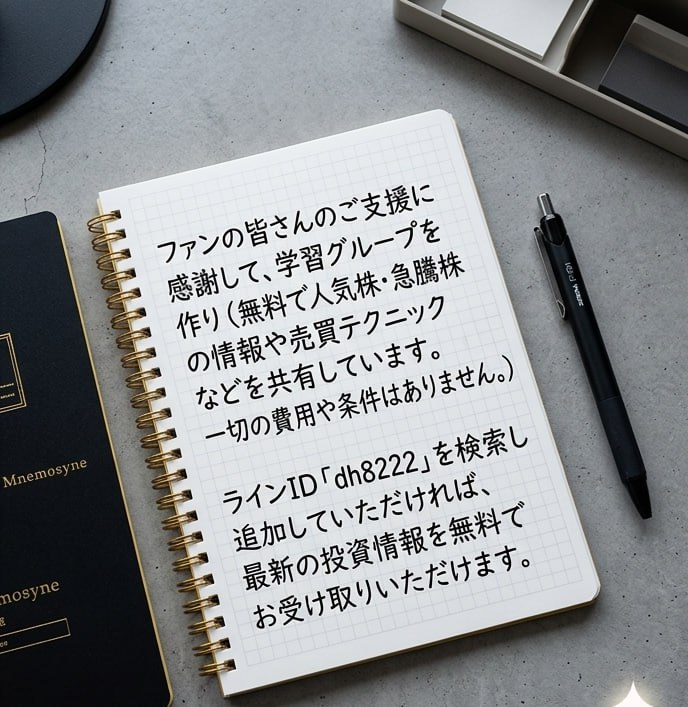 ファンの皆さんのご支援に
感謝して、学習グループを
作り（無料で人気株・急騰株
の情報や売買テクニック
などを共有しています。
一切の費用や条件はありません。）
ラインID「dh8222」を検索し
追加していただければ、
最新の投資情報を無料で
お受け取りいただけます。
Mnemosyne
mosyne